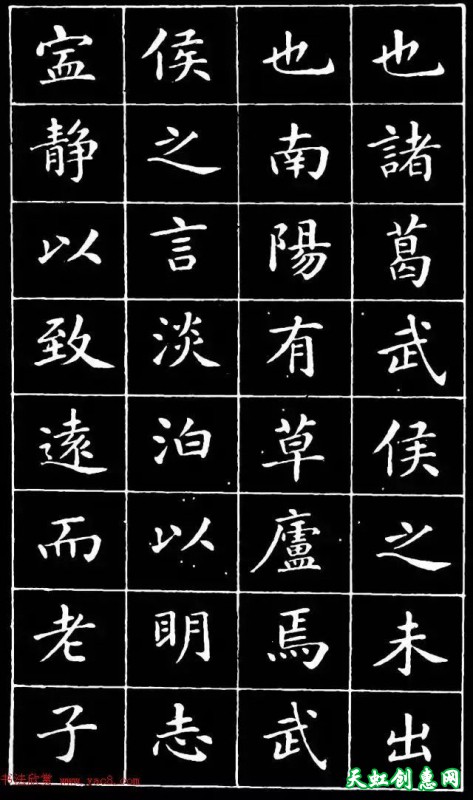 也諸葛武侯之未出
也南陽有草廬焉武
侯之言淡泊以明志
寍静以致遠而老子
书法欣赏 www.yac8.com
天虹创惠网